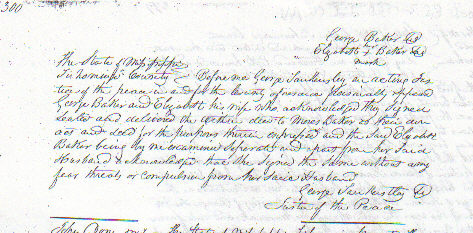 300
George Baker
Elizabeth Baker
mark
The State of Mississippi
Tishomingo County Before me George Saukesley an acting Jus
tice of the peace in and for the County aforesaid personally appeared
George Baker and Elizabeth his wife who acknowledged they signed
sealed and delivered the within deed to Moses Baker as their own
act and deed for the purposes therein expressed and the said Elizabeth
Baker being by me examined seperate and apart from her said
Husband acknowledged that she signed the same without any
fear threats or compulsion from her said Husband
George
Justice of the Peace
John the State of